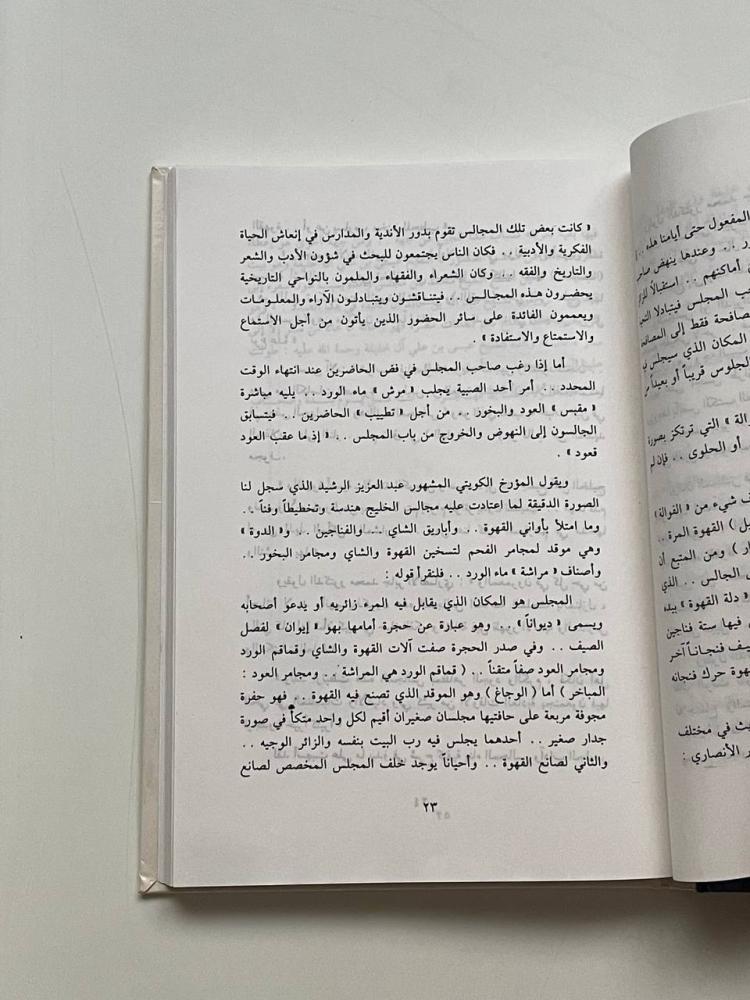 المفعول حتى أيامنا هذه ..
.. وعندها ينهض
أماكنهم .. استقبالاً
المجلس فيتبادلا
فقط إلى
المكان الذي سيجلس
الجلوس قريباً أو بعيداً من
» التي ترتكز بصورة
أو الحلوى .. فإن لم
شيء من « الفوالة »
) القهوة المرة ..
) ومن المتبع أن
الجالس .. الذي
« دلة القهوة » بيده
فيها ستة فناجين
فنجاناً آخر
حرك فنجانه
في مختلف
الأنصاري :
« كانت بعض تلك المجالس تقوم بدور الأندية والمدارس في إنعاش الحياة
الفكرية والأدبية .. فكان الناس يجتمعون للبحث في شؤون الأدب والشعر
والتاريخ والفقه .. وكان الشعراء والفقهاء والملمون بالنواحي التاريخية
يحضرون هذه المجالس .. فيتناقشون ويتبادلون الآراء والمعلومات
ويعممون الفائدة على سائر الحضور الذين يأتون من أجل الاستماع
والاستمتاع والاستفادة » .
أما إذا رغب صاحب المجلس في فض الحاضرين عند انتهاء الوقت
المحدد .. أمر أحد الصبية بجلب « مرش » ماء الورد .. يليه مباشرة
« مقبس » العود والبخور .. من أجل « تطييب » الحاضرين .. فيتسابق
الجالسون إلى النهوض والخروج من باب المجلس .. « إذ ما عقب العود
قعود » .
ويقول المؤرخ الكويتي المشهور عبد العزيز الرشيد الذي سجل لنا
الصورة الدقيقة لما اعتادت عليه مجالس الخليج هندسة وتخطيطاً وفناً ..
وما امتلأ بأواني القهوة .. وأباريق الشاي .. والفناجين .. و« الدوة »
وهي موقد لمجامر الفحم لتسخين القهوة والشاي ومجامر البخور ..
وأصناف « مراشة » ماء الورد .. فلنقرأ قوله :
المجلس هو المكان الذي يقابل فيه المرء زائريه أو يدعو أصحابه
ويسمى « ديواناً » .. وهو عبارة عن حجرة أمامها بهو « إيوان » لفصل
الصيف .. وفي صدر الحجرة صفت آلات القهوة والشاي وقماقم الورد
ومجامر العود صفاً متقناً .. ( قماقم الورد هي المراشة .. ومجامر العود :
المباخر ) أما ( الوجاغ ) وهو الموقد الذي تصنع فيه القهوة .. فهو حفرة
مجوفة مربعة على حافتيها مجلسان صغيران أقيم لكل واحد متكأ في صورة
جدار صغير .. أحدهما يجلس فيه رب البيت بنفسه والزائر الوجيه ..
والثاني لصانع القهوة .. وأحياناً يوجد خلف المجلس المخصص لصانع
٢٣